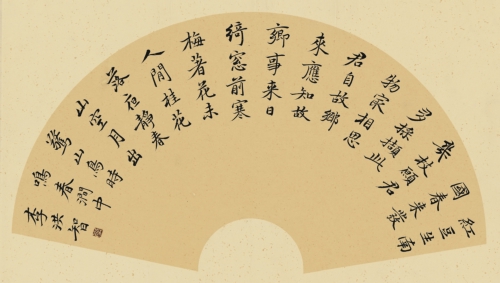 紅豆生南
國春來發
幾枝願君
多採擷此
物冣相思
君自故鄉
來應知故
鄉事來日
綺窓前寒
梅著花未
人閒桂花
落夜靜春
山空月出
驚山鳥時
鳴春澗中
李洪智